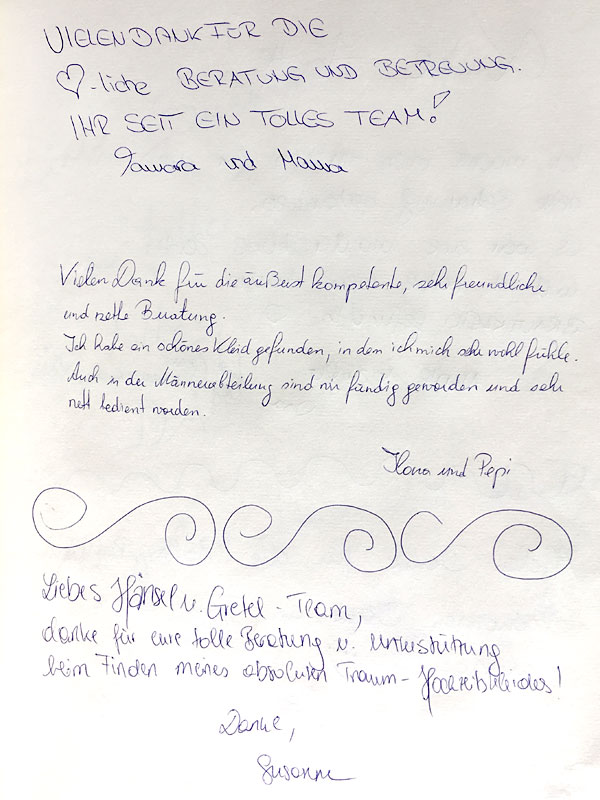 VIELEN DANK FÜR DIE
♡-liche BERATUNG UND BETREUUNG.
IHR SEIT EIN TOLLES TEAM!
Tamara und Mama
Vielen Dank für die äußerst kompetente, sehr freundliche
und nette Beratung.
Ich habe ein schönes Kleid gefunden, in dem ich mich sehr wohl fühle.
Auch in der Männerabteilung sind wir fündig geworden und sehr
nett bedient worden.
Ilona und Pepi
Liebes Hänsel u. Gretel-Team,
danke für eure tolle Beratung u. Unterstützung
beim Finden meines absoluten Traum-Hochzeitskleides!
Danke,
Susanne